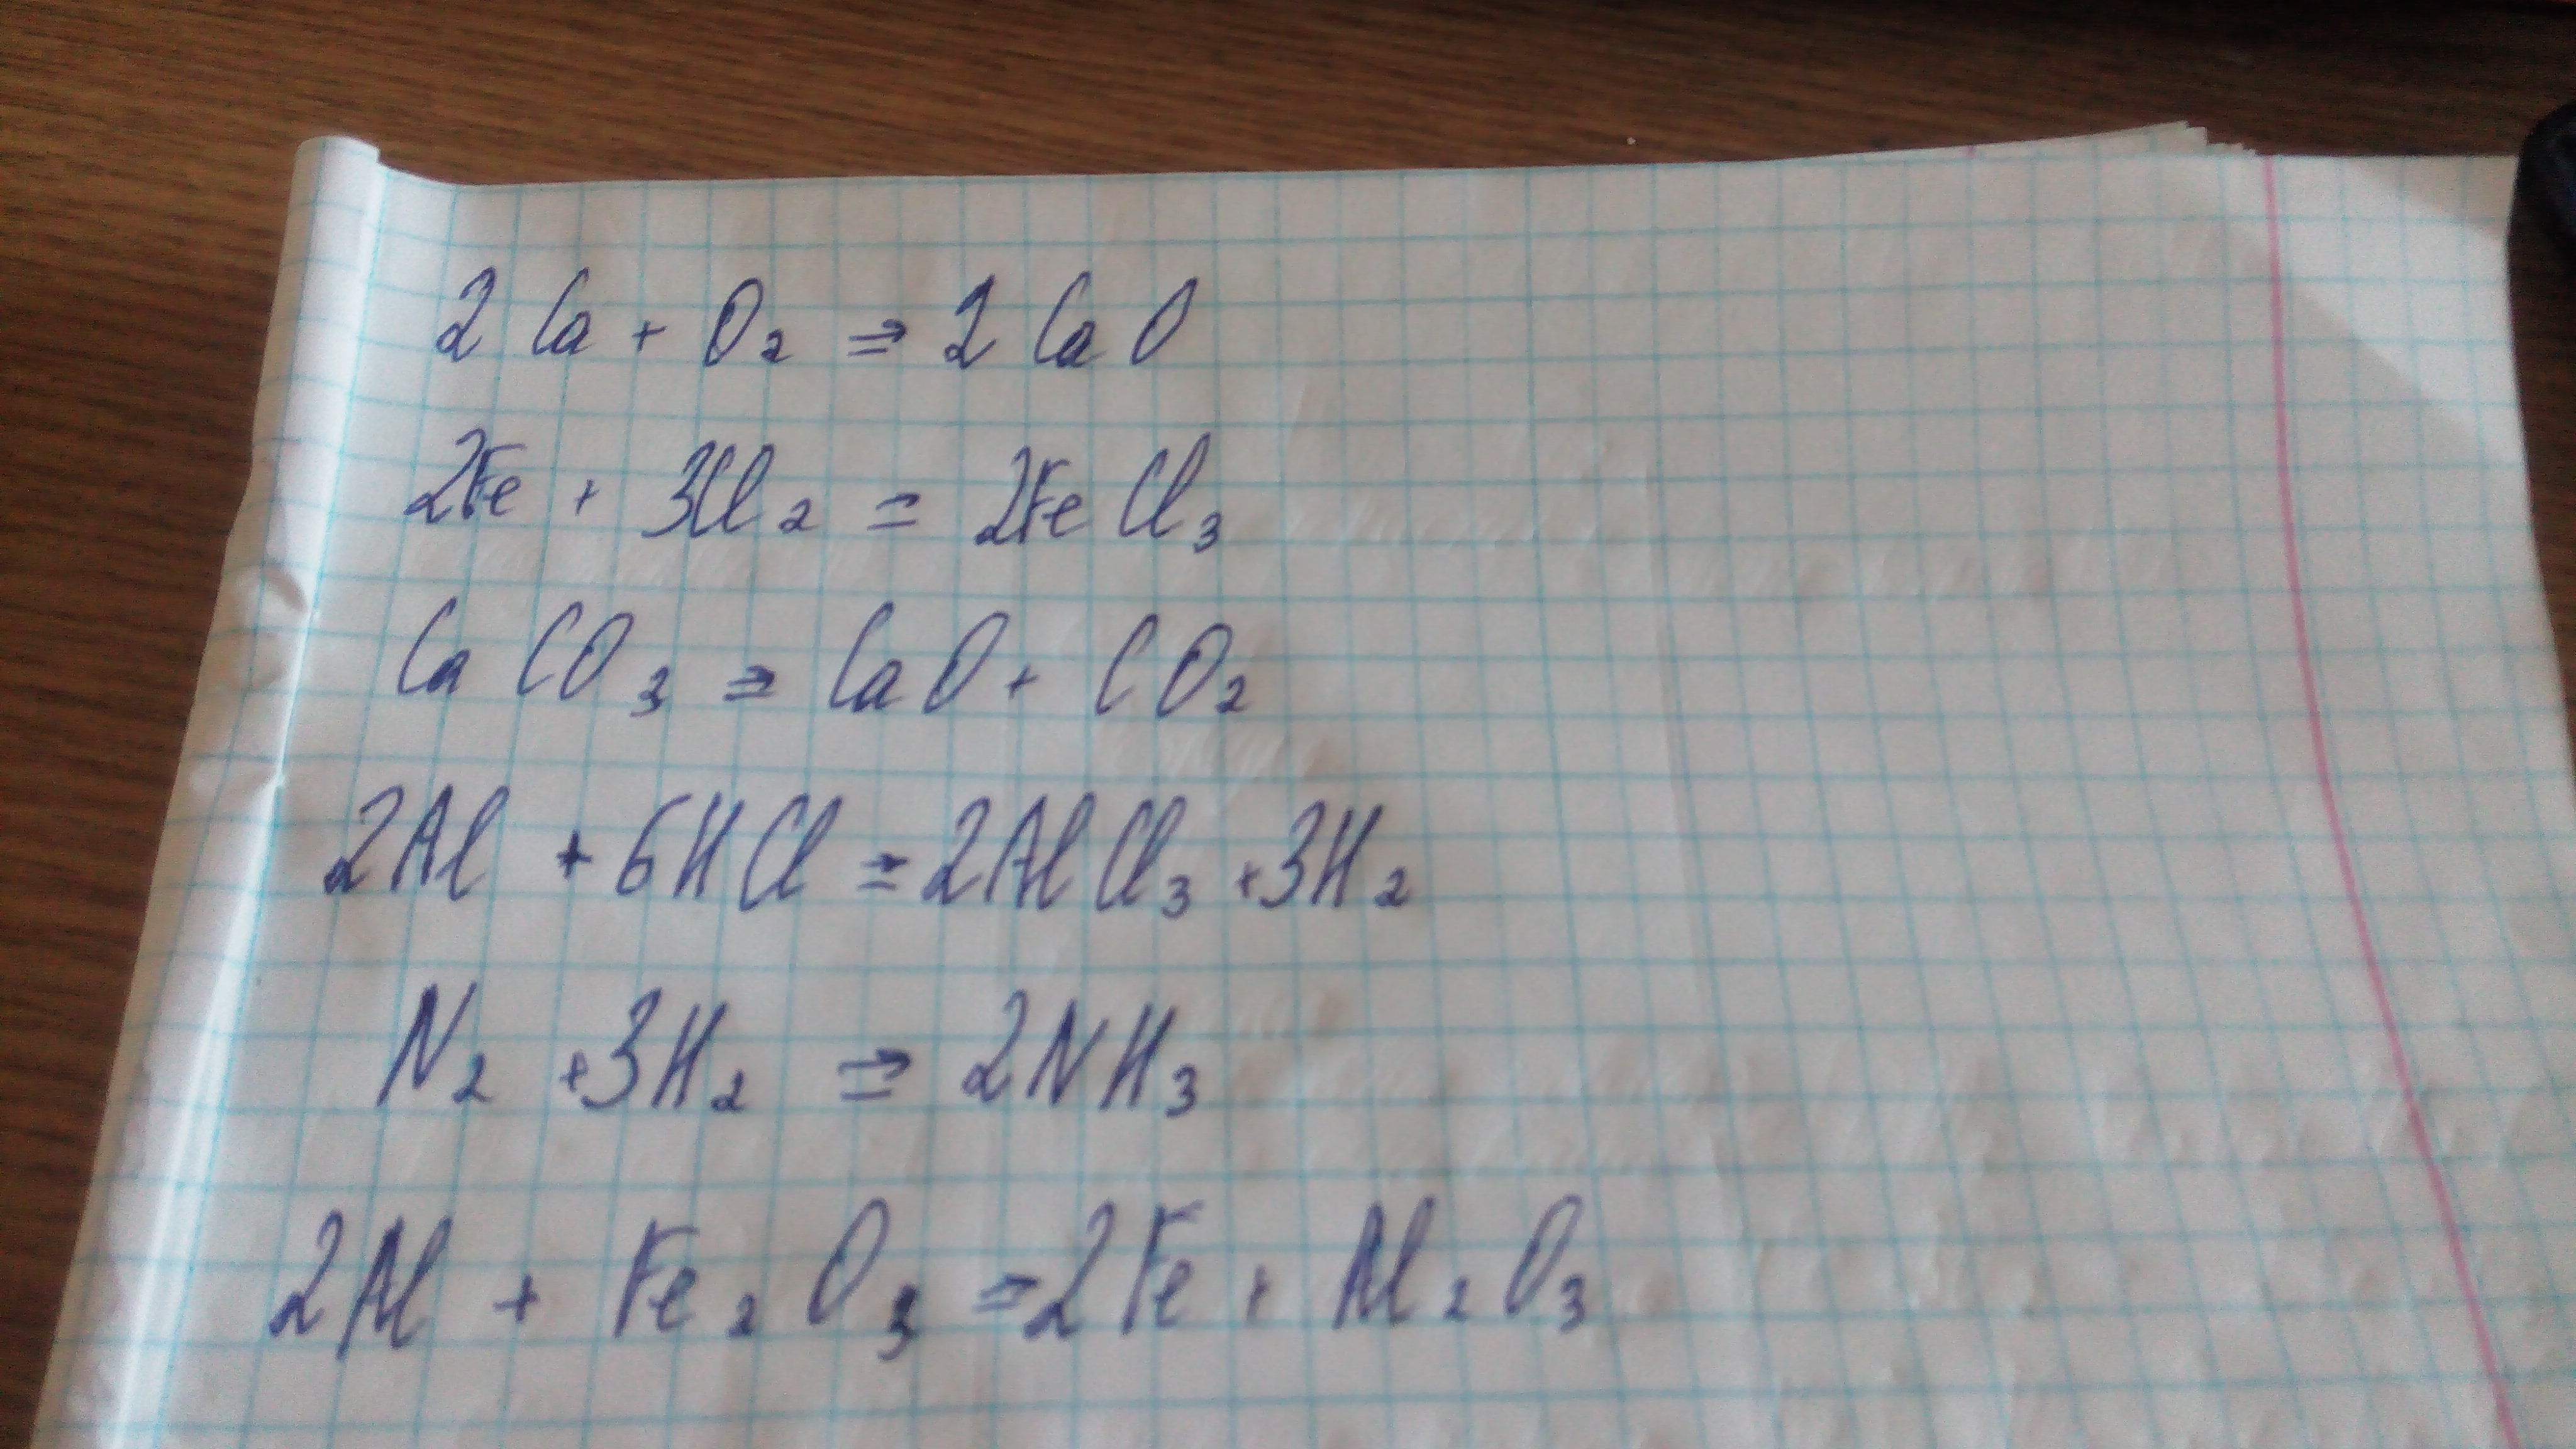 2Ca + O₂ ⇒ 2CaO
2Fe + 3Cl₂ = 2FeCl₃
CaCO₃ ⇒ CaO + CO₂
2Al + 6HCl = 2AlCl₃ + 3H₂
N₂ + 3H₂ ⇒ 2NH₃
2Al + Fe₂O₃ ⇒ 2Fe + Al₂O₃